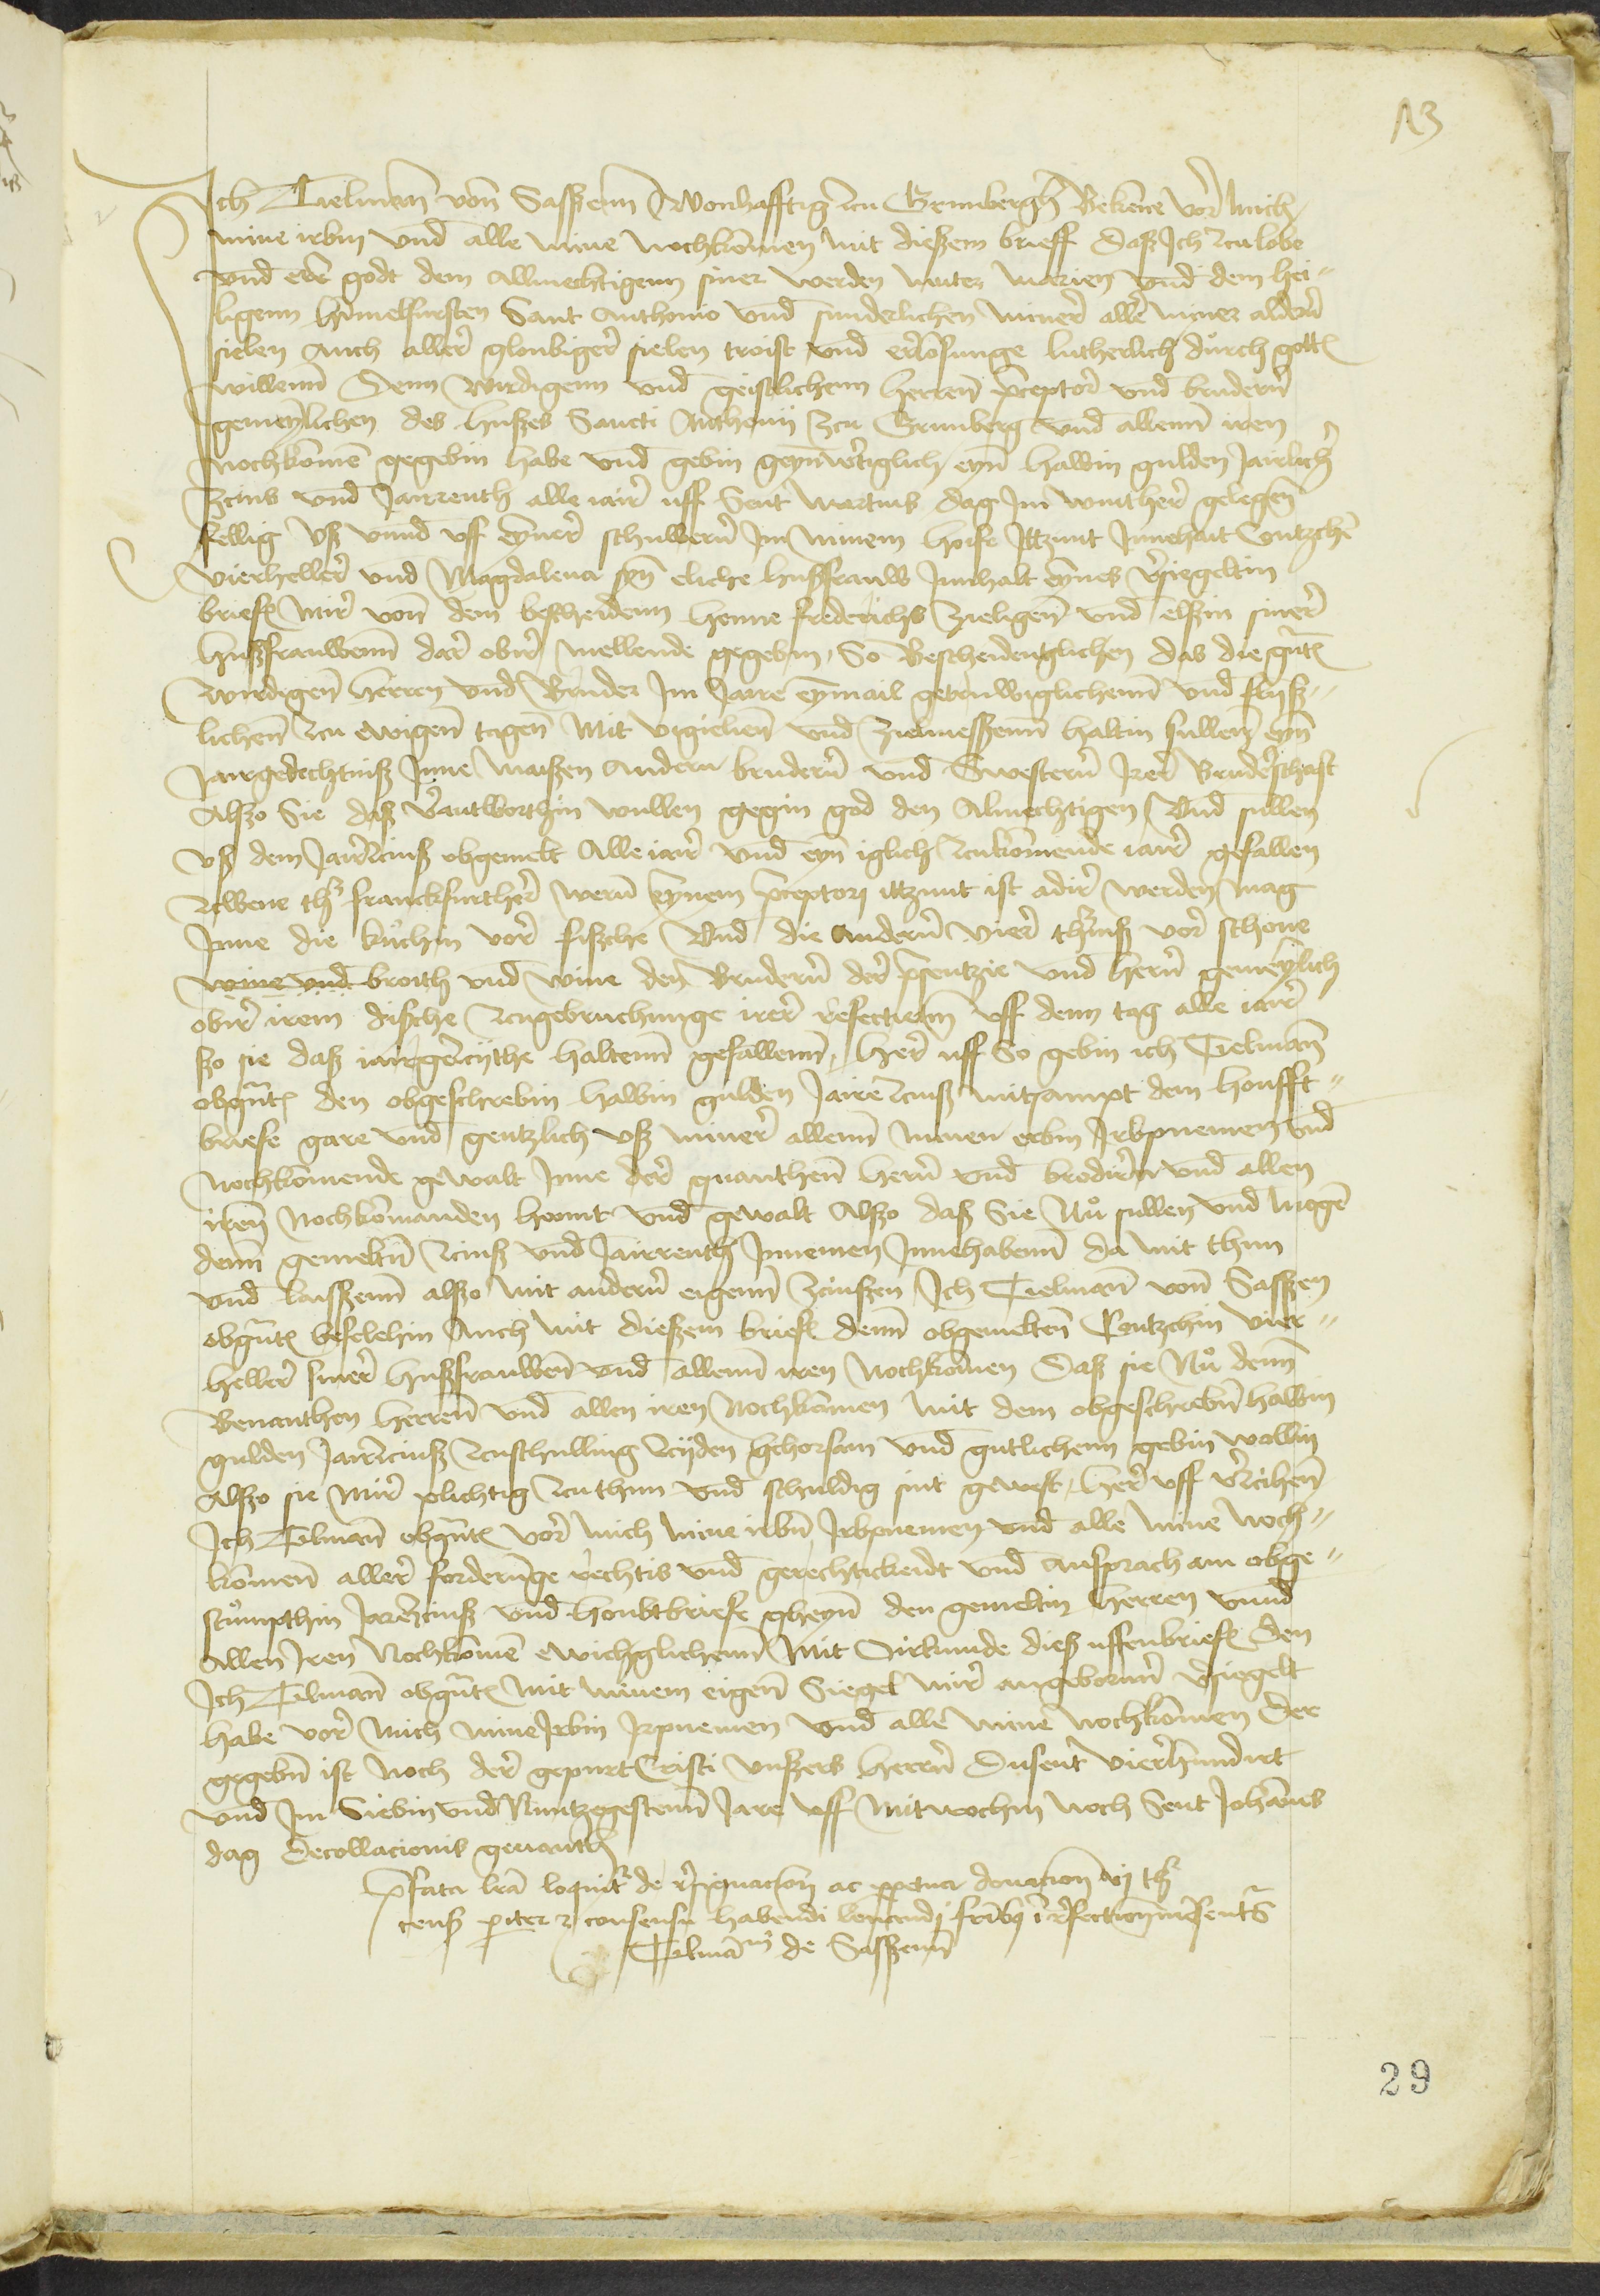 13
Ich Tielman̄ von̄ Saßzenn Wonhafftig zcu Grunbergh Bekēne vor mich
mine irbin vnd alle mine nochkom̄en mit dießem brieff Daß Ich zculobe
vnd ere godt dem Allmechtigenn siner werden muter marien vnd dem hei-
ligenn hym̄elfursten Sant Anthonio vnd sunderlichen miner aller myner aldern
sielen Auch aller gloubiger sielen troist vnd erloßunge lutherlich durch gotts
willenn Denn Wirdigenn vnd geistlichenn herren p̄ceptor vnd brudern
gemeynlichen des hußes Sancti Anthonij zcu Grunberg vnd allenn iren
Nochkom̄e gegebin habe vnd gebin geynwertiglich eyn̄ halbin gulden Jairlich
zcins vnd Jarrenth alle iair vff Sent martins dag Im winther gelegen
fellig vß vnnd vff eyner schuwern Im minem hoife Ittzunt Innehait Contzchē
vierheller vnd Magdalena syn̄ eliche hußfrauw Innhalt eynes v̄siegeltin
brieffs Mir von̄ dem bescheidenn henne frederichs zieligen vnd elßin siner
hußfrauwenn dar obir mellende gegebin, So Bescheidentglichen das die gn̄ts
Wirdigen herren vnd Bruder Im Jaire eynmail getruwiglichenn vnd flyß-
lichen zcu ewigen tagen Mit vigielien vnd zielmeßzenn haltin sullen eyn̄
Jairgedechtniß Inne maißen andern brudern vnd Swestern Irer Bruderschaft
Alßo Sie daß v̄antworthin wullen gegin god den Almechtigen Vnd sullen
vß dem Jairzcinß obgemelt Alle iair vnd eyn iglich zcukom̄ende iair gefallen
zcwene th franckfurther wern eynem p̄ceptori ittzunt ist adir werden mag
Inne die kuchin vor fißche Vnd die andern vier thorniß vor schone
wine vnd broith vnd wine den Brudern der p̄sentzie vnd hern gemeynlich
obir irem diſche zcugebruchunge irer refectienn vff denn tag alle iair
ßo sie daß iairgezcijthe haltenn gefallenn, her vff So gebin ich Tielman̄
obgn̄ts den obgeschrebin halbin gulden Jairezcinß mitsampt dem houfft-
briefe gare vnd gentzlich vß miner allenn minen erbin Irbnemen vnd
Nochkom̄ende gewalt Inne der gnanthen hern vnd brodirn vnd allen
iren Nochkom̄anden hannt vnd gewalt Alßo daß Sie Nů sullen vnd mogē
denn gemeltn zcinß vnd Jairrenth Innemen Innehabenn da mit thun
vnd laißzenn alßo mit andern eigenn zcinßen Ich Tielman̄ von̄ Saßzen
obgn̄ts befelehin Auch mit dießem brieff denn obgemelten Contzchin vier-
heller siner hußfrauwen vnd allenn iren Nochkom̄en Daß sie Nů denn
Benanthen herren vnd allen iren Nochkom̄en mit dem obgeschrebn halbin
gulden Jairzcinß zcuschulling zcijden gehorsam vnd gutlichenn gebin wollin
Alßo sie mir plichtig zcuthun vnd schuldig sint gewest, her vff v̄zcihen
Ich Tilman̄ obgn̄ts vor mich mine irbn Irbnemen vnd alle mine noch-
kom̄en aller forderunge rechtis vnd gerechtickeidt vnd ansprach am obge-
stumpthin Jarezcinß vnd houbtbriefe gheyn den gemeltin herren vnnd
Allen Iren Nochkom̄e ewichglichenn Mit Orkunde dieß uffenbrieffs Den
Ich Tilman̄ obgn̄ts mit minem eigen Siegel mir angeborn v̄siegelt
habe vor mich mine Irbin Irpnemen vnd alle mine nochkom̄en Der
gegebn ist noch der gepurt Cristi vnßers herrn Dusent vierhundirt
vnd Im Siebin vnd Nuntzcgestenn Jare vff Mitwochin noch Sent Johan̄s
dag Decollacionis genanth
P̄fata lr̄a loquit̄ de r̄signacion ac ꝑpetua donacion vj th
cenß p̄iter ⁊ consensu habendi fr̄ibꝫ ī refection
Tilmā⁹ de Saßzenn
29